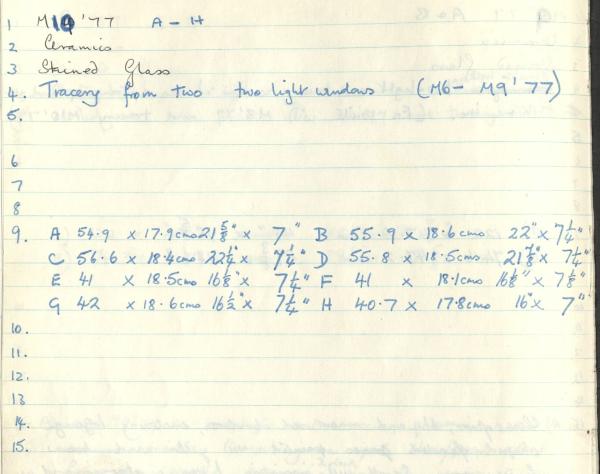 1 M10'77 A - H
2 Ceramics
3 Stained Glass
4. Tracery from two two light windows (M6 - M9'77)
5.
6
7
8
9. A 54.9 x 17.9cms 21 5/8" x 7" B 55.9 x 18.6cms 22" x 7 1/4"
C 56.6 x 18.4cms 22 1/4" x 7 1/4" D 55.8 x 18.5cms 21 7/8" x 7 1/4"
E 41 x 18.5cms 16 1/8" x 7 1/4" F 41 x 18.1cms 16 1/8" x 7 1/8"
G 42 x 18.6cms 16 1/2" x 7 1/4" H 40.7 x 17.8cms 16" x 7"
10.
11.
12.
13
14.
15.